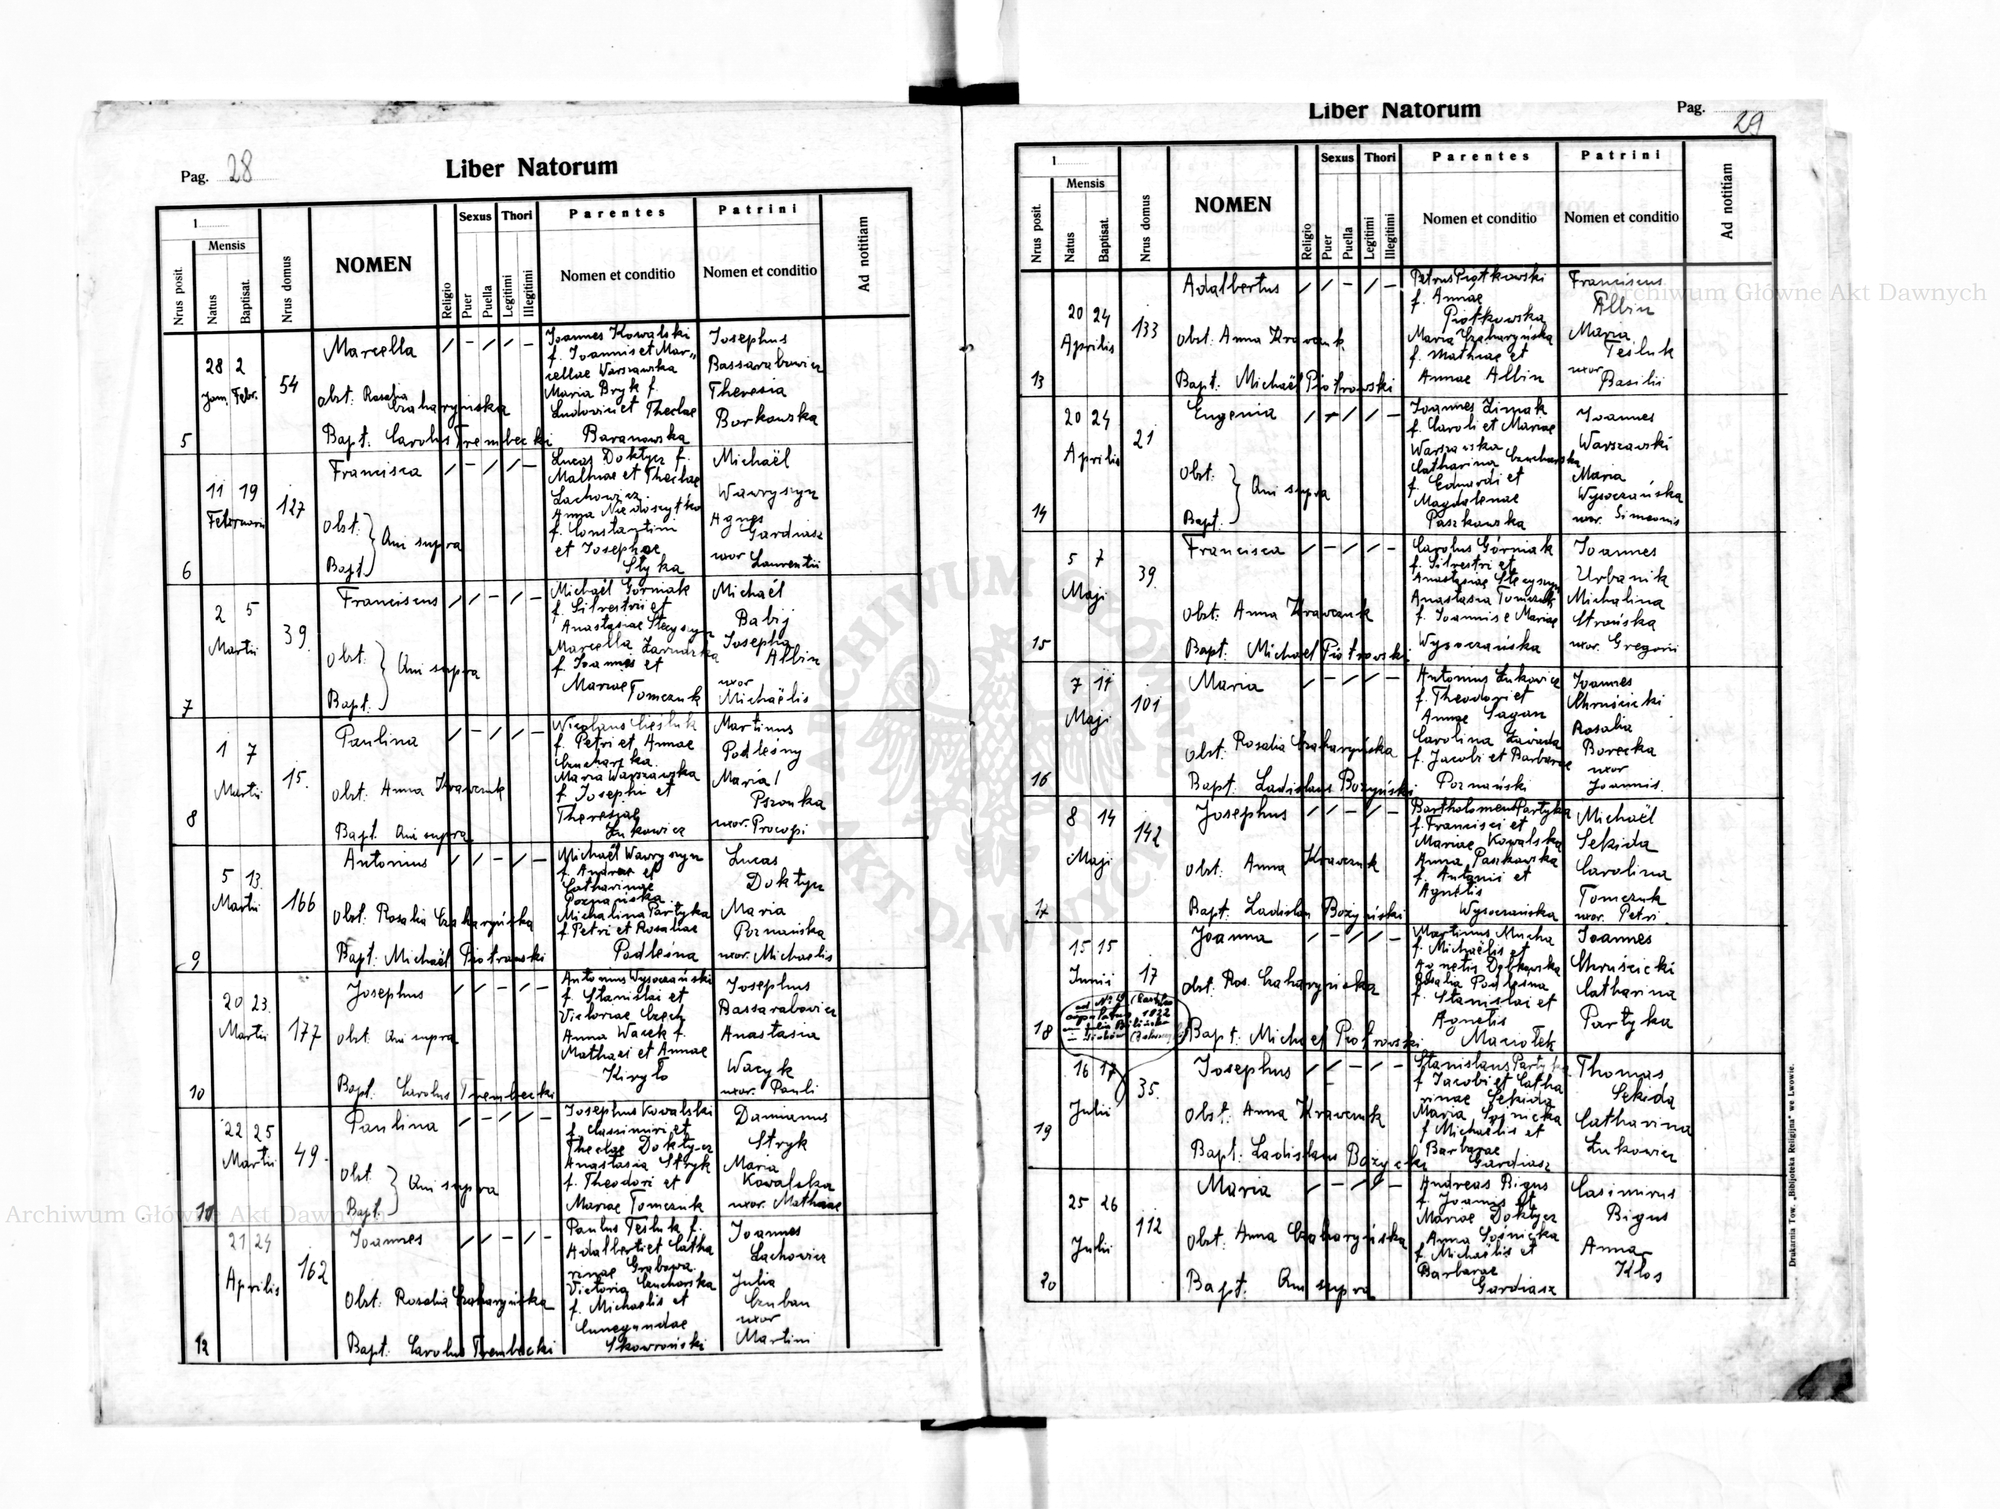 Pag. 28
Liber Natorum
1
Mensis
Nrus posit.
Natus
Baptisat.
Nrus domus
NOMEN
Religio
Sexus
Puer
Puella
Thori
Legitimi
Illegitimi
Parentes
Nomen et conditio
Patrini
Nomen et conditio
Ad notitiam
5
28 2
Jan. Febr.
54
Marcella
obst. Rosalia
Czaharyńska
Bapt. Carolus Trembecki
Joannes Kowalski
f. Joannis et Mar„
cellae Warszawska
Maria Bryk f.
Ludovici et Theclae
Baranowska
Josephus
Bassarabowicz
Theresia
Borkowska
6
11 19
Februarii
127
Francisca
Obst.
Bapt.
Qui supra
Lucas Doktycz f.
Mathiae et Theclae
Lachowicz
Anna Niedoszytko
f. Constantini
et Josephae
Styka
Michaël
Wawryszyn
Agnes
Gardiasz
uxor Laurentii
7
2 5
Martii
39.
Franciscus
Obst.
Bapt.
Qui supra
Michaël Górniak
f. Silvestri et
Anastasiae Stecyszyn
Marcella
f. Joannis et
Mariae Tomczuk
Michaël
Babij
Josepha
Albin
uxor
Michaëlis
8
1 7
Martii
15.
Paulina
Obst. Anna Krawczuk
Bapt. Qui supra
Nicolaus Cieśluk
f. Petri et Annae
Czucharska
Maria Warszawska
f. Josephi et
Theresiae
Łukowicz
Martinus
Podleśny
Maria
Pszonka
uxor. Procopi
9
5 13.
Martii
166
Antonius
Obst. Rosalia Czaharyńska
Bapt. Michaël Piotrowski
Michaël Wawryszyn
f. Andreae et
Catharinae
Poznańska
Michalina Partyka
f. Petri et Rosaliae
Podleśna
Lucas
Doktycz
Maria
Poznańska
uxor. Michaelis
10
20 23.
Martii
177
Josephus
obst. Qui supra
Bapt. Carolus Trembecki
Antonius Wysoczański
f. Stanislai et
Victoriae Czech
Anna Wacek f.
Mathaei et Annae
Kiryło
Josephus
Bassarabowicz
Anastasia
Wacyk
uxor. Pauli
22 25
Martii
49.
Paulina
Obst.
Bapt.
Qui supra
Josephus Kowalski
f. Cassimiri et
Theclae Doktycz
Anastasia Stryk
f. Theodori et
Mariae Tomczuk
Damianus
Stryk
Maria
Kowalska
uxor. Mathiae
12
21 24
Aprilis
162
Joannes
Obst. Rosalia Czaharyńska
Bapt. Carolus Trembecki
Paulus Tesluk f.
Adalberti et Catha
rinae Grabowa
Victoria Czucharska
f. Michaelis et
Cunegundae
Skowroński
Joannes
Lachowicz
Julia
Czuban
uxor
Martini
Liber Natorum
Pag. 29
1
Mensis
Nrus posit.
Natus
Baptisat.
Nrus domus
NOMEN
Religio
Sexus
Puer
Puella
Thori
Legitimi
Illegitimi
Parentes
Nomen et conditio
Patrini
Nomen et conditio
Ad notitiam
13
20 24
Aprilis
133
Adalbertus
Obst. Anna Krawczuk
Bapt. Michaël Piotrowski
Petrus Piotkowski
f. Annae
Piotkowska
Maria Czaharyńska
f. Mathiae et
Annae Albin
Franciscus
Albin
Maria
Tesluk
uxor
Basilii
14
20 24
Aprilis
21
Eugenia
Obst.
Bapt.
Qui supra
Joannes Zimak
f. Caroli et Mariae
Warszawska
Catharina Czucharska
f. Eduardi et
Magdalenae
Paszkowska
Joannes
Warszawski
Maria
Wysoczańska
uxor. Simeonis
15
5 7
Maji
39.
Francisca
Obst. Anna Krawczuk
Bapt. Michael Piotrowski
Carolus Górniak
f. Silvestri et
Anastasiae Stecyszyn
Anastasia Tomczuk
f. Joannis e Mariae
Wysoczańska
Joannes
Urbanik
Michalina
Strońska
uxor. Gregorii
16
7 11
Maji
101
Maria
Obst. Rosalia Czaharyńska
Bapt. Ladislaus Bożyński
Antonius Łukowicz
f. Theodori et
Annae Sagan
Carolina Zawada
f. Jacobi et Barbarae
Poznański
Joannes
Chruścicki
Rosalia
Borecka
uxor
Joannis.
17
8 14
Maji
142
Josephus
Obst. Anna Krawczuk
Bapt. Ladislau Bożyński
Bartholomeus Partyka
f. Francisci et
Mariae Kowalska
Anna Paszkowska
f. Antonii et
Agnetis
Wysoczańska
Michaël
Sekida
Carolina
Tomczuk
uxor. Petri.
18
15 15
Junii
17
Joanna
obst. Ros. Czaharyńska
Bapt. Michael Piotrowski
Martinus Mucha
f. Michaëlis et
Agnetis Dębkowska
Rosalia Podlesna
f. Stanislai et
Agnetis
Mariołek
Joannes
Chruścicki
Catharina
Partyka
19
16 17
Julii
35.
Josephus
Obst. Anna Krawczuk
Bapt. Ladislaus
Stanislaus Partyka
f. Jacobi et Catha
rinae Sekida
Maria Sośnicka
f. Michaëlis et
Barbarae
Gardiasz
Thomas
Sekida
Catharina
Łukowicz
20
25 26
Julii
112
Maria
Obst. Anna Czaharyńska
Bapt. Qui supra
Andreas Bigus
f. Joannis et
Mariae Doktycz
Anna Sośnicka
f. Michaëlis et
Barbarae
Gardiasz
Casimirus
Bigus
Anna
Kłos
Drukarnia Tow. „Bibljoteka Religijna" we Lwowie.
Archiwum Główne Akt Dawnych
Archiwum Główne Akt Dawnych
ARCHIWUM GŁÓWNE AKT DAWNYCH